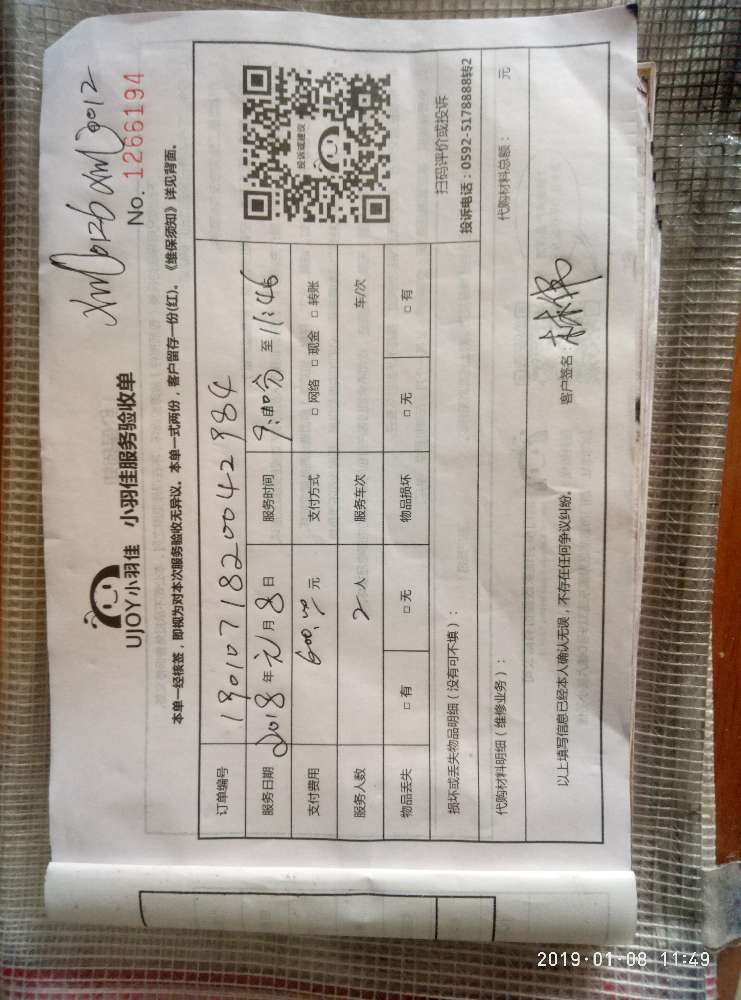 xm0126 am0012
No. 1266194
UJOY小羽佳 小羽佳服务验收单
本单一经核签，即视为对本次服务验收无异议。本单一式两份，客户留存一份(红)。《维保须知》详见背面。
订单编号 190107182004 2984
服务日期 2018年元月8日 服务时间 9:00分至11:46
支付费用 600.00元 支付方式 □ 网络 □ 现金 □ 转账
服务人数 2人 服务车次 车/次
物品丢失 □ 有 □ 无 物品损坏 □ 无 □ 有
投诉或建议
扫码评价或投诉
投诉电话：0592-5178888转2
损坏或丢失物品明细（没有可不填）：
代购材料明细（维修业务）： 代购材料总额： 元
以上填写信息已经本人确认无误，不存在任何争议纠纷。 客户签名：林伟
2019·01·08 11:49